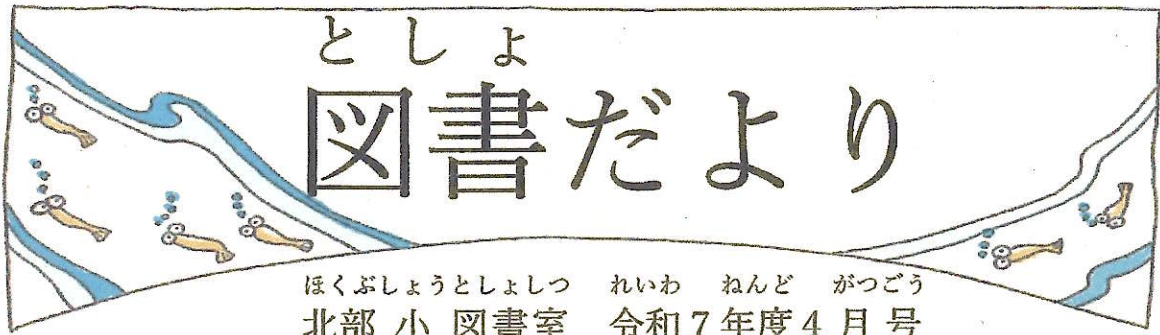 としょ
図書だより
ほくぶしょうとしょしつ れいわ ねんど がつごう
北部 小 図書室 令和7年度4月号